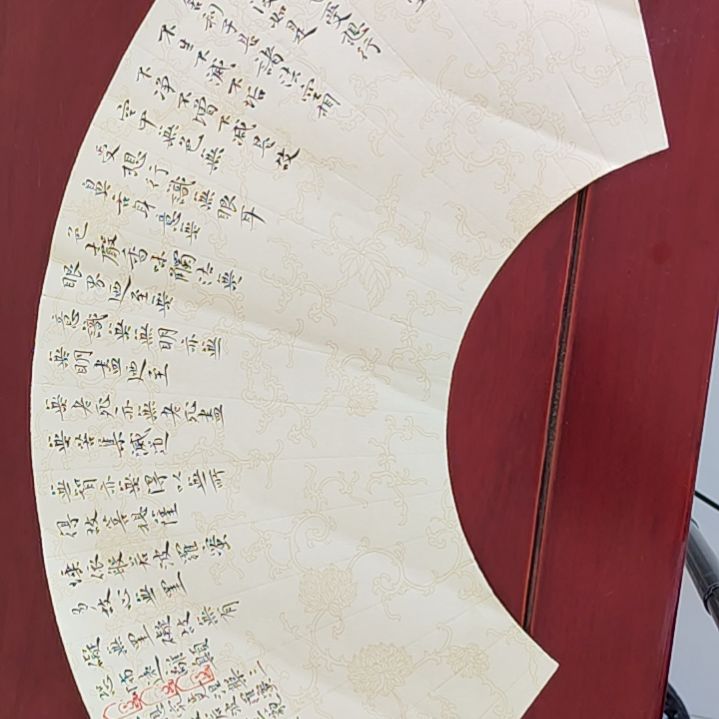 受想行
復如是
舍利子是諸法空相
不生不滅不垢
不净不增不減是故
空中無色無
受想行識無眼耳
鼻舌身意無
色聲香味觸法無
眼界乃至無
意識無無明亦無
無明盡乃至
無老死亦無老死盡
無苦集滅道
無智亦無得以無所
得故菩提薩
埵依般若波羅蜜
多故心無罣
礙無罣礙故無有
恐怖遠離顛